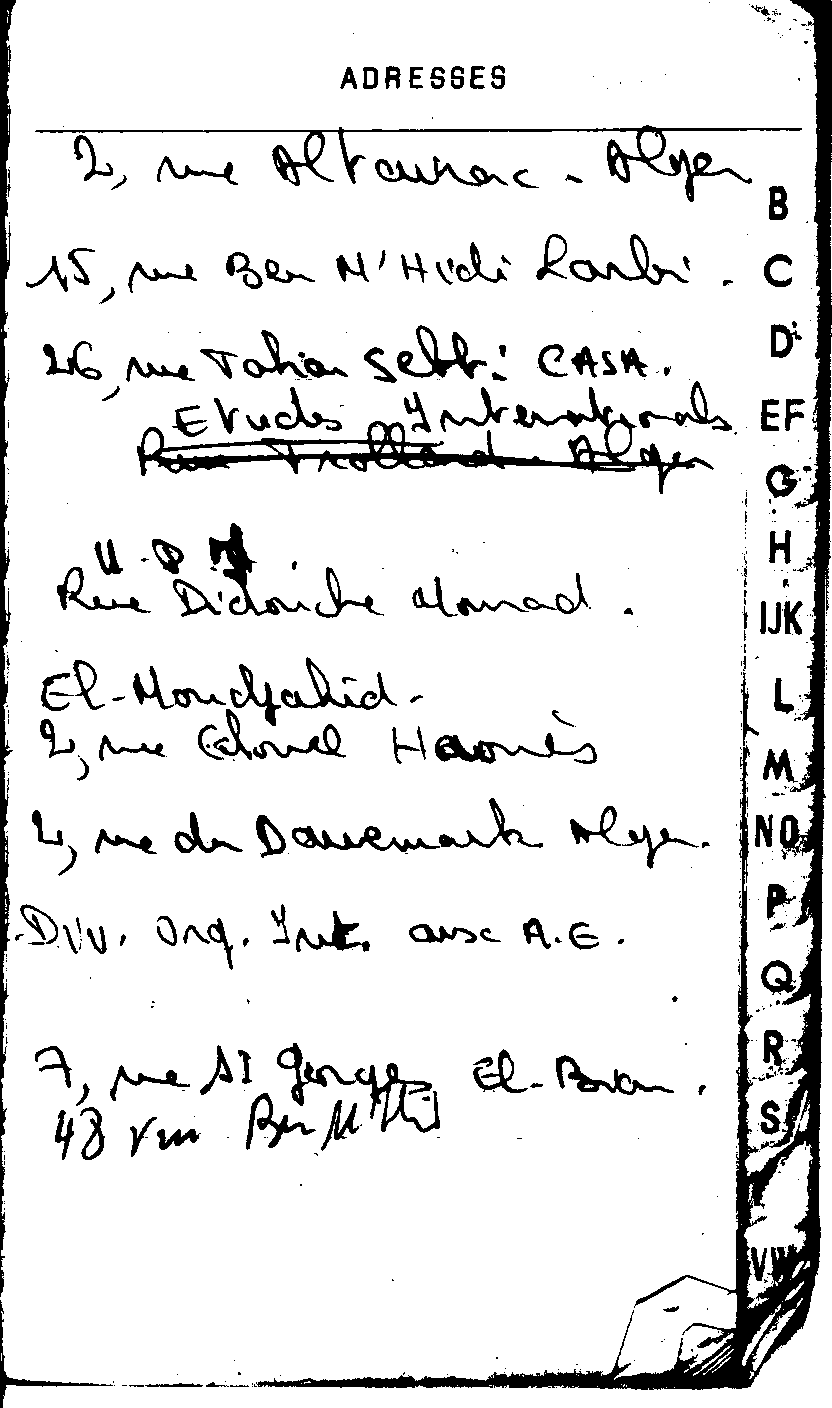 ADRESSES
2, rue Altairac - Alger
15, rue Ben M'Hidi Larbi.
26, rue Tahar Sebti CASA.
Etudes Internationals
Rue Trolland Alger
U.P.
Rue Didouche Mourad.
El-Moudjahid-
2, rue Colonel Haouès
2, rue du Danemark Alger.
Div. Org. Int. aux A.E.
7, rue St Georges El-Biar.
48 rue Ben M'Hidi
B
C
D
EF
G
H
IJK
L
M
NO
P
Q
R
S
VW